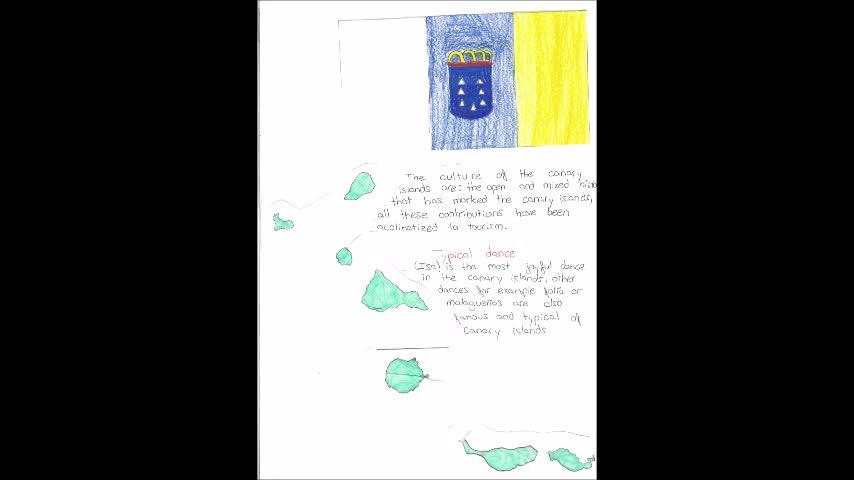 The culture of the canary
islands are: the open and mixed histo
that has marked the canary islands,
all these contributions have been
acclitatized to tourism.
Typical dance
(Isa) is the most joyful dance
in the canary islands, other
dances for example folía or
malagueñas are also
famous and typical of
Canary islands